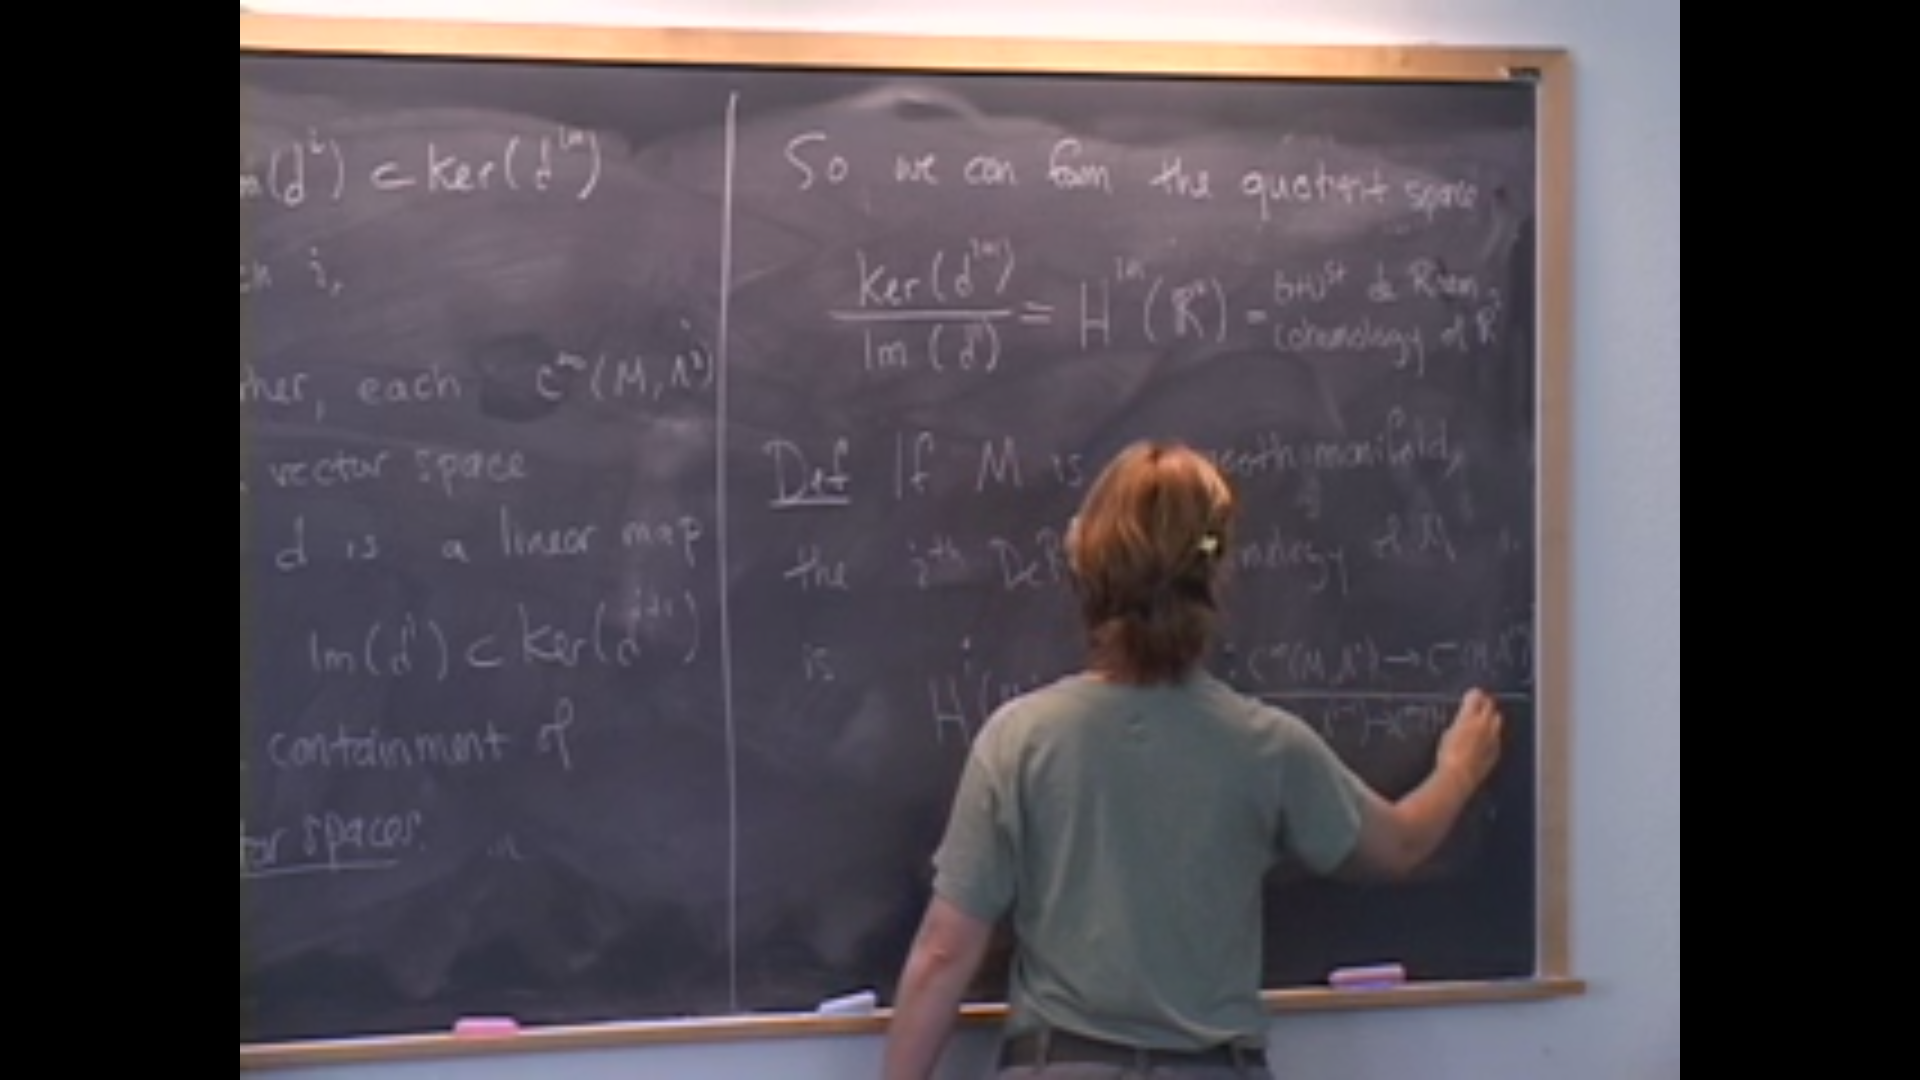 (dⁱ) ⊂ ker(dⁱ⁺¹)
i,
each C^∞(M, Λⁱ)
vector space
d is a linear map
Im(dⁱ) ⊂ ker(dⁱ⁺¹)
containment of
spaces.
So we can form the quotient space
ker(dⁱ⁺¹)
= Hⁱ⁺¹(ℝ) - (i+1)ˢᵗ de Rham
Im(dⁱ) cohomology of
Def If M is manifold,
the iᵗʰ DeR of M
is Hⁱ : C^∞(M, Λⁱ) → C^∞(M,